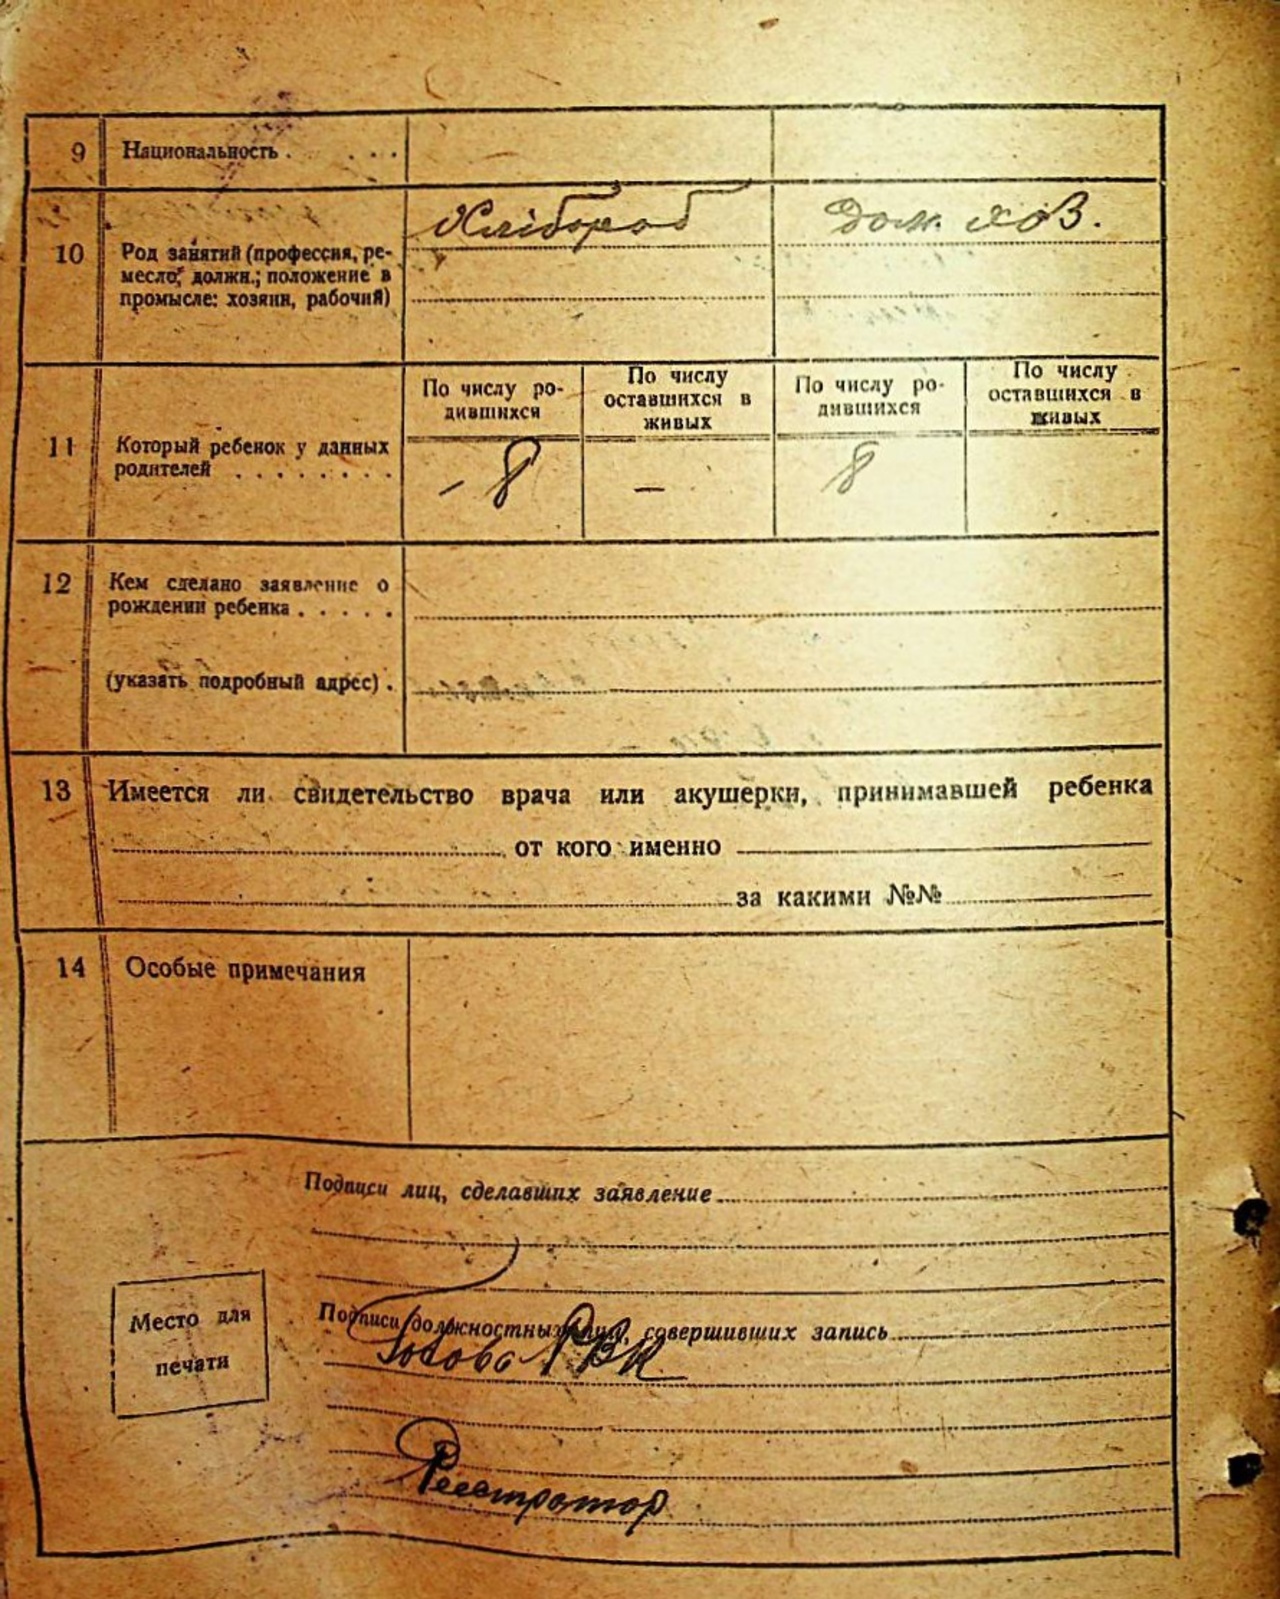 9 Национальность . . . .
Хлібороб Дом. хоз.
10 Род занятий (профессия, ре-
месло, должн.; положение в
промысле: хозяин, рабочий)
По числу ро-
дившихся
По числу
оставшихся в
живых
По числу ро-
дившихся
По числу
оставшихся в
живых
11 Который ребенок у данных
родителей . . . . . . . .
- 8 — 8
12 Кем сделано заявление о
рождении ребенка . . . . .
(указать подробный адрес) .
13 Имеется ли свидетельство врача или акушерки, принимавшей ребенка
от кого именно
за какими №№
14 Особые примечания
Подписи лиц, сделавших заявление
Место для
печати
Подписи должностных лиц, совершивших запись
Голова РВК
Реестратор